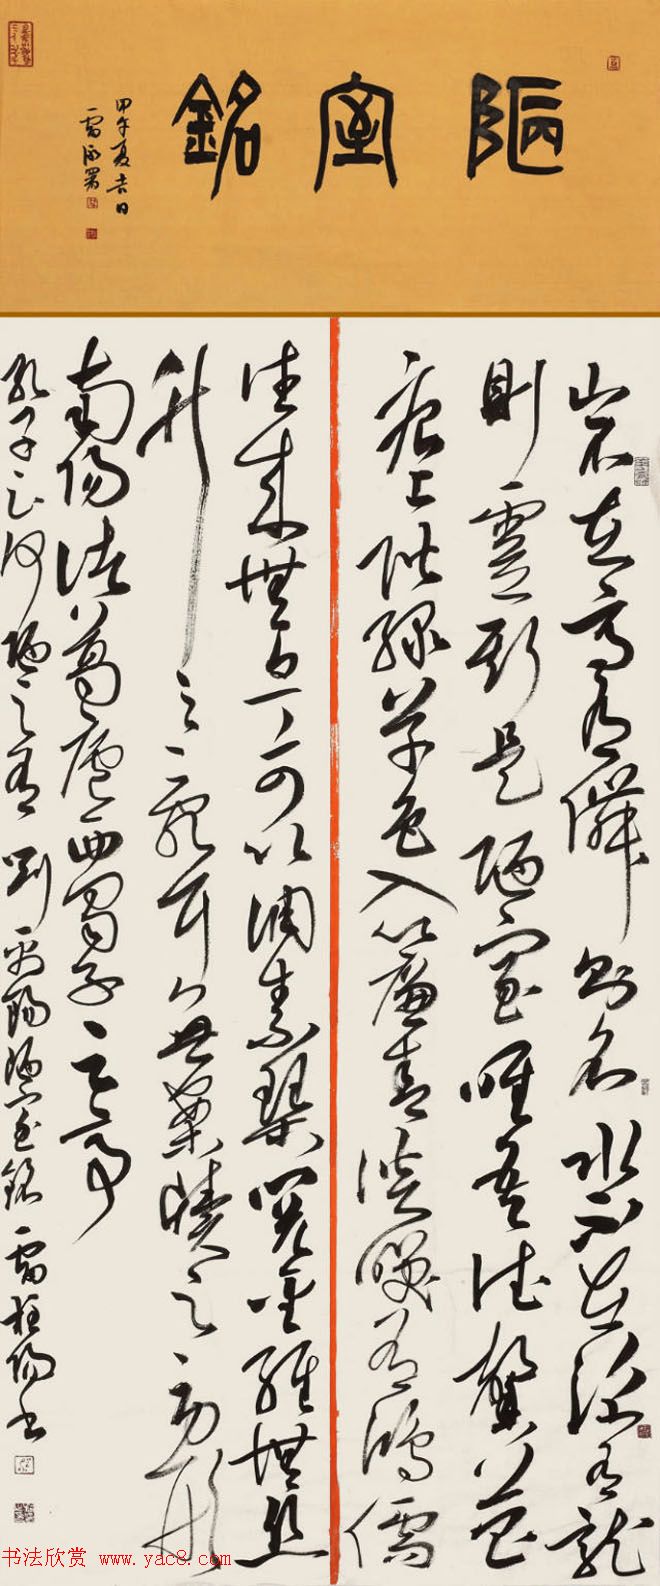 陋室銘
甲午夏吉日
山不在高有僊則名水不在深有龍
則靈斯是陋室唯吾德馨苔
痕上階綠草色入簾青談笑有鴻儒
往來無白丁可以調素琴閱金經無絲
竹之亂耳無案牘之勞形
南陽諸葛廬西蜀子云亭
孔子云何陋之有 劉禹錫陋室銘 雷 書
书法欣赏 www.yac8.com